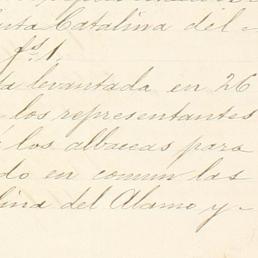 nta Catalina del
fs. 1.
ta levantada en 26
los representantes
los albaceas para
do en comun las
lina del Alamo y-